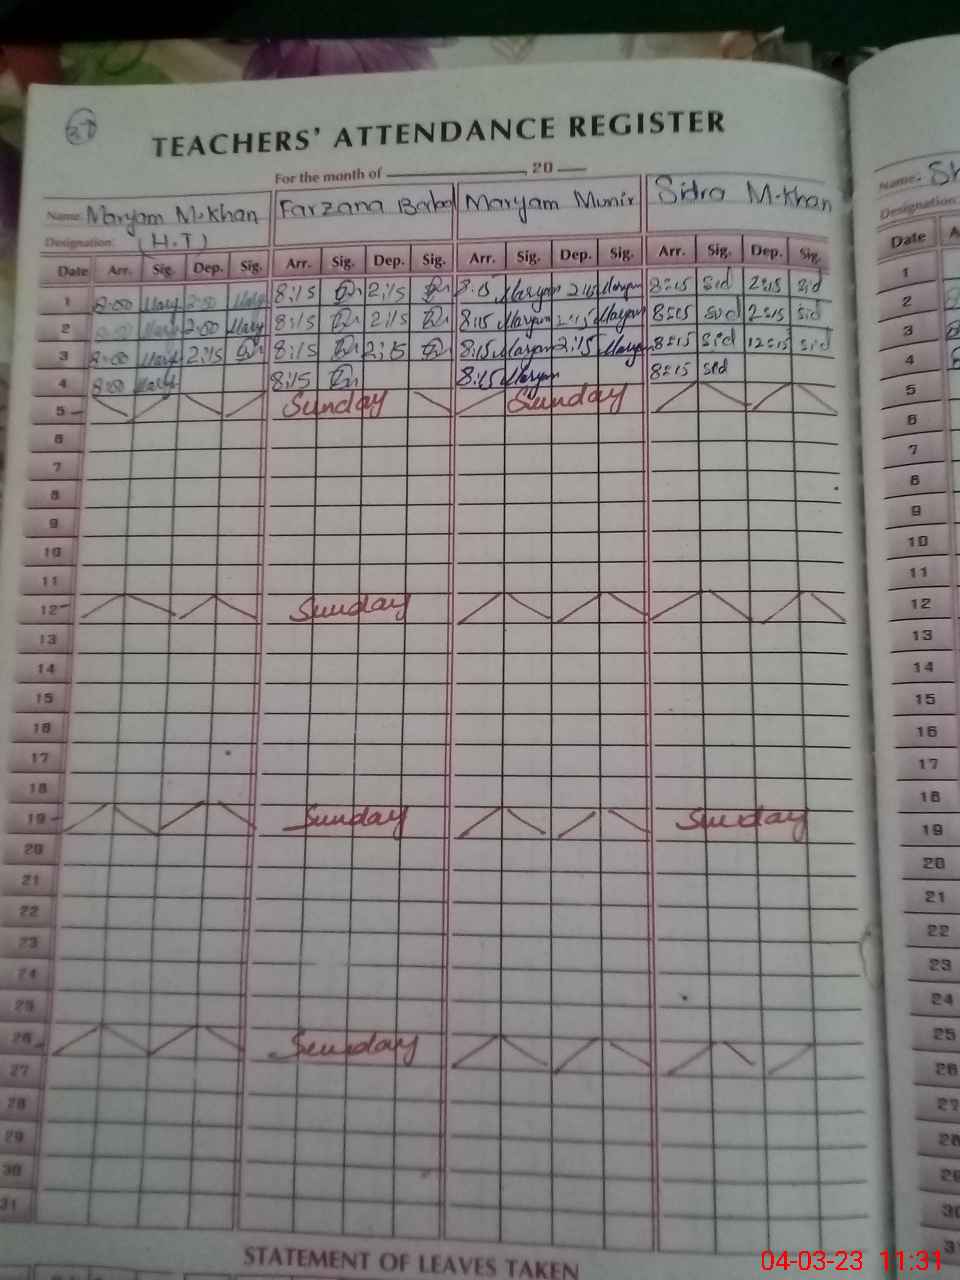 37
TEACHERS' ATTENDANCE REGISTER
For the month of , 20
Name: Maryam M.Khan Farzana Maryam Munir Sidra M.Khan Name. Sh
Designation: (H.T) Designation:
Date Arr. Sig. Dep. Sig. Arr. Sig. Dep. Sig. Arr. Sig. Dep. Sig. Arr. Sig. Dep. Sig. Date A
1 8:00 Mary 2:00 Mary 8:15 2:15 8:15 Maryam 2:15 Maryam 8:15 sid 2:15 sid 1
2 Mary 2:00 Mary 8:15 2:15 8:15 Maryam 2:15 Maryam 8:15 sid 2:15 sid 2
3 8:00 Mary 2:15 8:15 2:15 8:15 Maryam 2:15 Maryam 8:15 sid 12:15 sid 3
4 8:00 Mary 8:15 8:15 Maryam 8:15 sid 4
5 Sunday Sunday 5
6 6
7 7
8 8
9 9
10 10
11 11
12 Sunday 12
13 13
14 14
15 15
16 16
17 17
18 18
19 Sunday Sunday 19
20 20
21 21
22 22
23 23
24 24
25 25
26 Sunday 26
27 27
28 28
29 29
30 30
31 31
STATEMENT OF LEAVES TAKEN
04-03-23 11:31